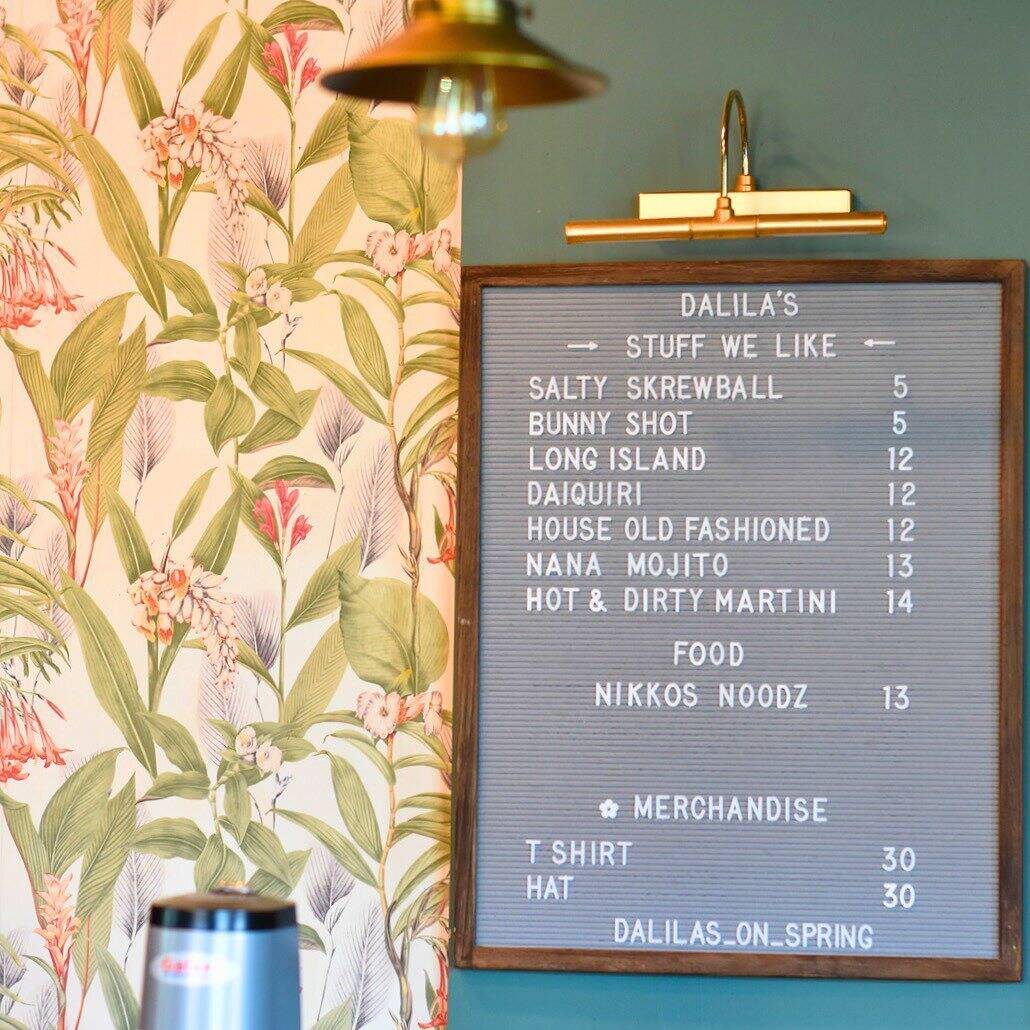 DALILA'S
→ STUFF WE LIKE ←
SALTY SKREWBALL 5
BUNNY SHOT 5
LONG ISLAND 12
DAIQUIRI 12
HOUSE OLD FASHIONED 12
NANA MOJITO 13
HOT & DIRTY MARTINI 14
FOOD
NIKKOS NOODZ 13
MERCHANDISE
T SHIRT 30
HAT 30
DALILAS_ON_SPRING